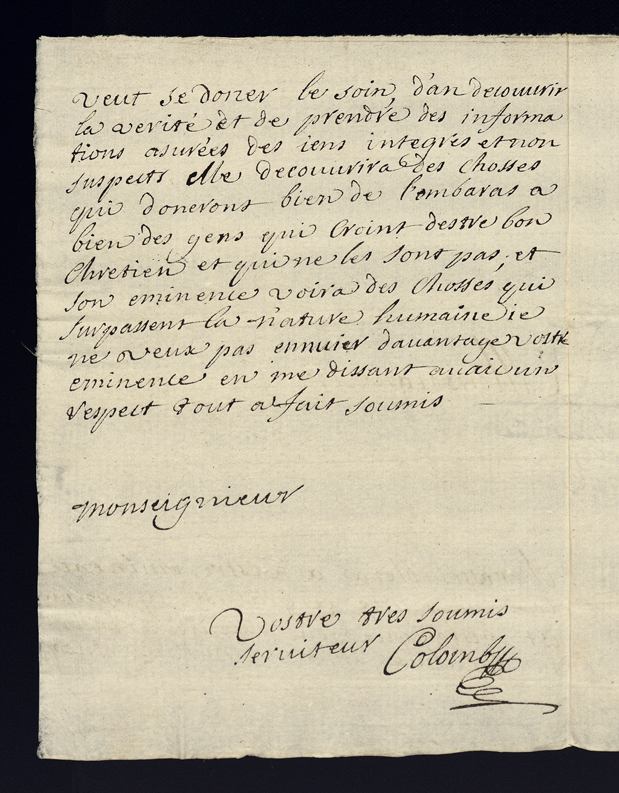 veut se doner le soin, d'an decouvrir
la verité et de prendre des informa
tions asurées des iens integres et non
suspects elle decouvrira des chosses
qui doneront bien de l'ombaras a
bien des gens qui croint destre bon
Chretien et qui ne les sont pas, et
son eminence voira des chosses qui
surpassent la nature humaine ie
ne veux pas ennuier davantage vostre
eminence en me dissant avaic un
respect tout a fait soumis
monseignieur
Vostre tres soumis
serviteur